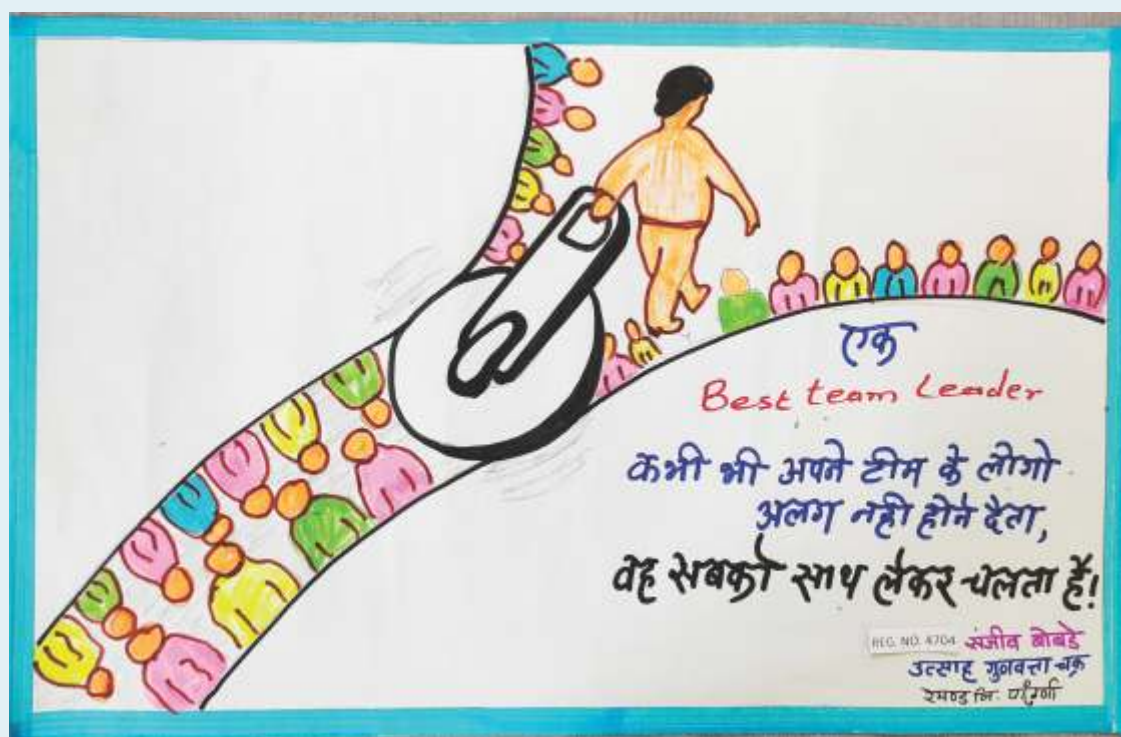 एक
Best team Leader
कभी भी अपने टीम के लोगो
अलग नही होने देता,
वह सबको साथ लेकर चलता है!
REG. NO. A704 संजीव बोबडे
उत्साह गुणवत्ता चक्र
रेमण्ड लि.